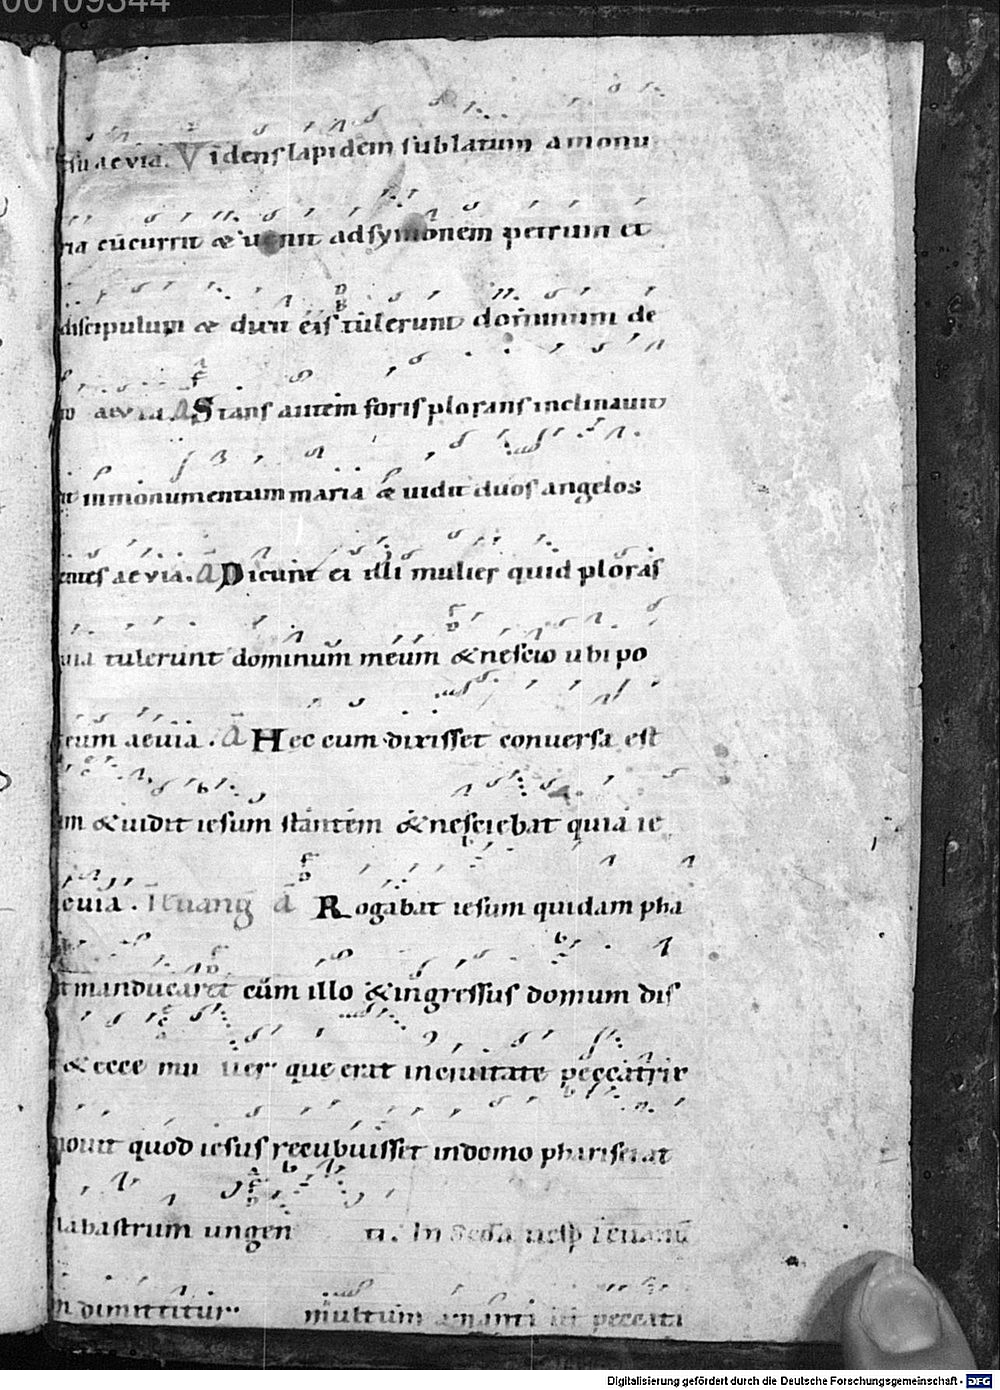 00109344
su aevia. Videns lapidem sublatum a monu
ria cucurrit & uenit ad symonem petrum et
discipulum & dicit eis tulerunt dominum de
to aevia. A Stans autem foris plorans inclinauit
it in monumentum maria & uidit duos angelos
entes aevia. A Dicunt ei illi mulier quid ploras
uia tulerunt dominum meum & nescio ubi po
eum aeuia. A Hec cum dixisset conuersa est
um & uidit iesum stantem & nesciebat quia ie
euia. In euang A Rogabat iesum quidam pha
t manducaret cum illo & ingressus domum dis
& ecce mu lier que erat in ciuitate peccatrix
nouit quod iesus recubuisset in domo pharisei at
labastrum ungen ti. In
n dimittitur multum amanti peccati
Digitalisierung gefördert durch die Deutsche Forschungsgemeinschaft - DFG